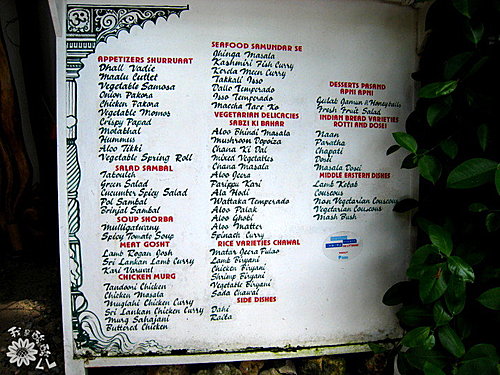 APPETIZERS SHURRUAAT
Dhall Vadie
Maalu Cutlet
Vegetable Samosa
Onion Pakora
Chicken Pakora
Vegetable Momos
Crispy Papad
Molabhal
Hummus
Aloo Tikki
Vegetable Spring Roll
SALAD SAMBAL
Tabouleh
Green Salad
Cucumber Spicy Salad
Pol Sambal
Brinjal Sambal
SOUP SHORBA
Mulligatwany
Spicy Tomato Soup
MEAT GOSHT
Lamb Rogan Josh
Sri Lankan Lamb Curry
Kari Varuwal
CHICKEN MURG
Tandoori Chicken
Chicken Masala
Muglahi Chicken Curry
Sri Lankan Chicken Curry
Murg Sahajani
Buttered Chicken
SEAFOOD SAMUNDAR SE
Ghinga Masala
Kashmiri Fish Curry
Kerela Meen Curry
Takkali Isso
Dallo Temperado
Isso Temperado
Maccha Tare Ko
VEGETARIAN DELICACIES
SABZI KI BAHAR
Aloo Bhindi Masala
Mushroom Dopoiza
Chana Ki Dal
Mixed Vegetables
Chana Masala
Aloo Jeera
Parippu Kari
Ala Hodi
Wattaka Temperado
Aloo Palak
Aloo Ghobi
Aloo Matter
Spinach Curry
RICE VARIETIES CHAWAL
Matar Jeera Pulao
Lamb Biryani
Chicken Biryani
Shrimp Biryani
Vegetable Biryani
Sada Chawal
SIDE DISHES
Dahi
Raita
DESSERTS PASAND
APNI APNI
Gulab Jamun & Honeyballs
Fresh Fruit Salad
INDIAN BREAD VARIETIES
ROTTI AND DOSEI
Naan
Paratha
Chapati
Dosei
Masala Dosei
MIDDLE EASTERN DISHES
Lamb Kebab
Couscous
Non Vegetarian Couscous
Vegetarian Couscous
Mash Bush